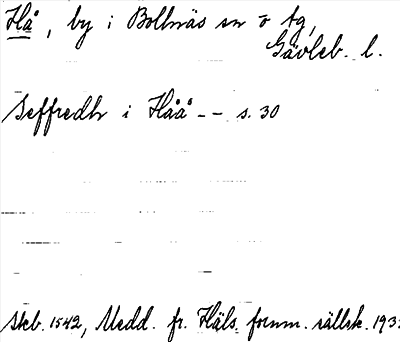 Hå, by i Bollnäs sn o tg,
Gävleb. l.
Seffredh i Håå -- s. 30
Skb. 1542, Medd. fr. Häls. fornm. sällsk. 193